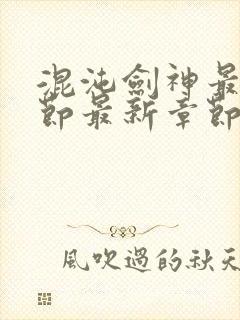 混沌劍神最
節最新章節
風吹過的秋天